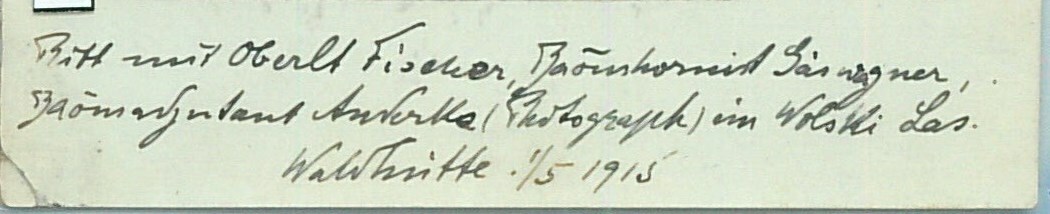 Ritt mit Oberlt Fischer, Baonshornist Gaswagner,
Baonsadjutant Anderka (Photograph) im Wolski Las.
Waldhütte 1/5 1915